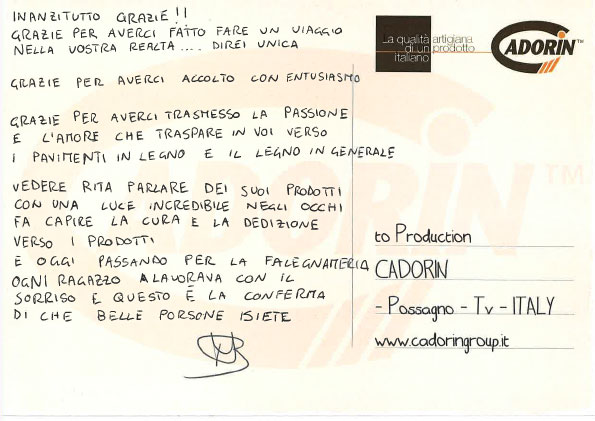 INANZITUTTO GRAZIE!!
GRAZIE PER AVERCI FATTO FARE UN VIAGGIO
NELLA VOSTRA REALTA.... DIREI UNICA
GRAZIE PER AVERCI ACCOLTO CON ENTUSIASMO
GRAZIE PER AVERCI TRASMESSO LA PASSIONE
E L'AMORE CHE TRASPARE IN VOI VERSO
I PAVIMENTI IN LEGNO E IL LEGNO IN GENERALE
VEDERE RITA PARLARE DEI SUOI PRODOTTI
CON UNA LUCE INCREDIBILE NEGLI OCCHI
FA CAPIRE LA CURA E LA DEDIZIONE
VERSO I PRODOTTI
E OGGI PASSANDO PER LA FALEGNAMERIA
OGNI RAGAZZO LAVORAVA CON IL
SORRISO E QUESTO È LA CONFERMA
DI CHE BELLE PORSONE SIETE
La qualità artigiana
di un prodotto
italiano
CADORIN™
to Production
CADORIN
- Possagno - Tv - ITALY
www.cadoringroup.it
CADORIN™